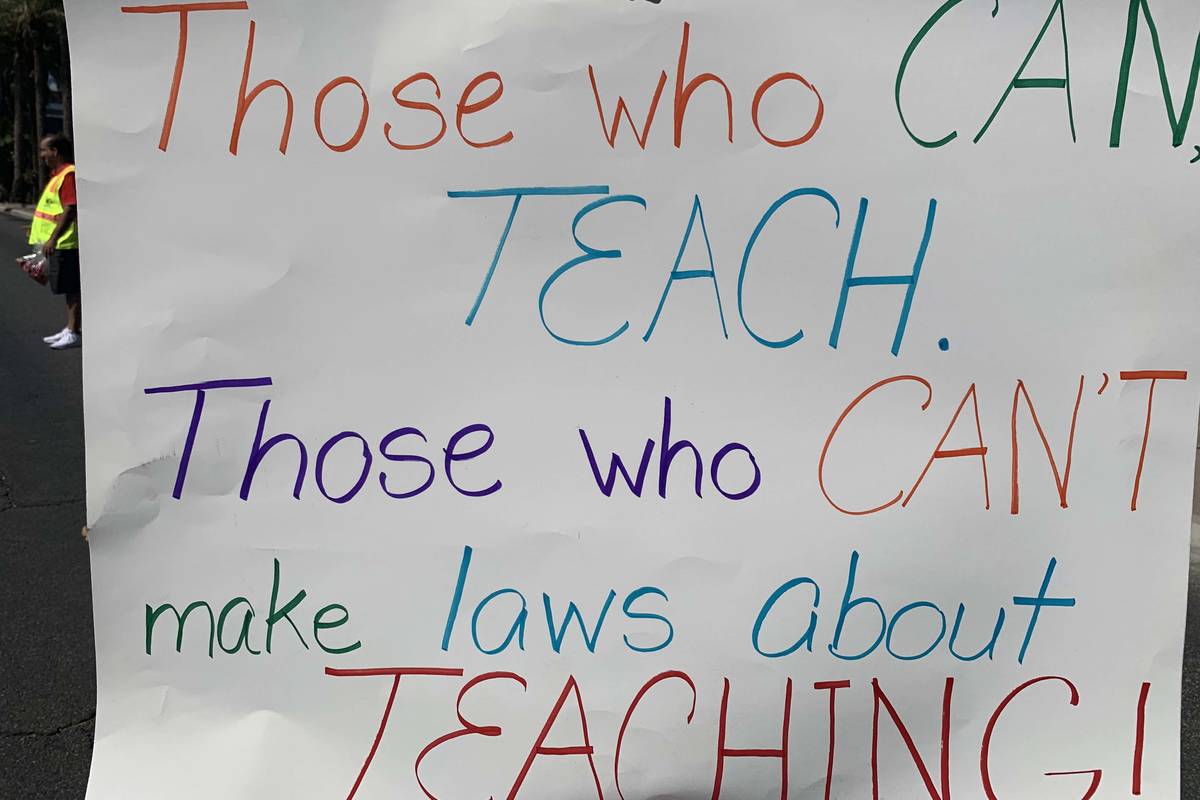 Those who CAN,
TEACH.
Those who CAN'T
make laws about
TEACHING!